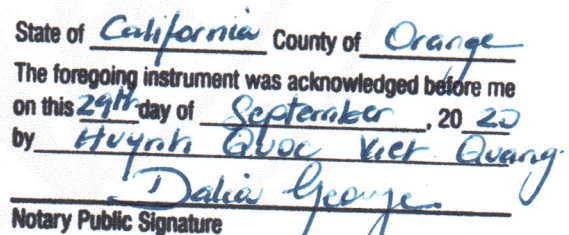 State of California County of Orange
The foregoing instrument was acknowledged before me
on this 29th day of September, 20 20
by Huynh Quoc Viet Quang.
Dalia George.
Notary Public Signature